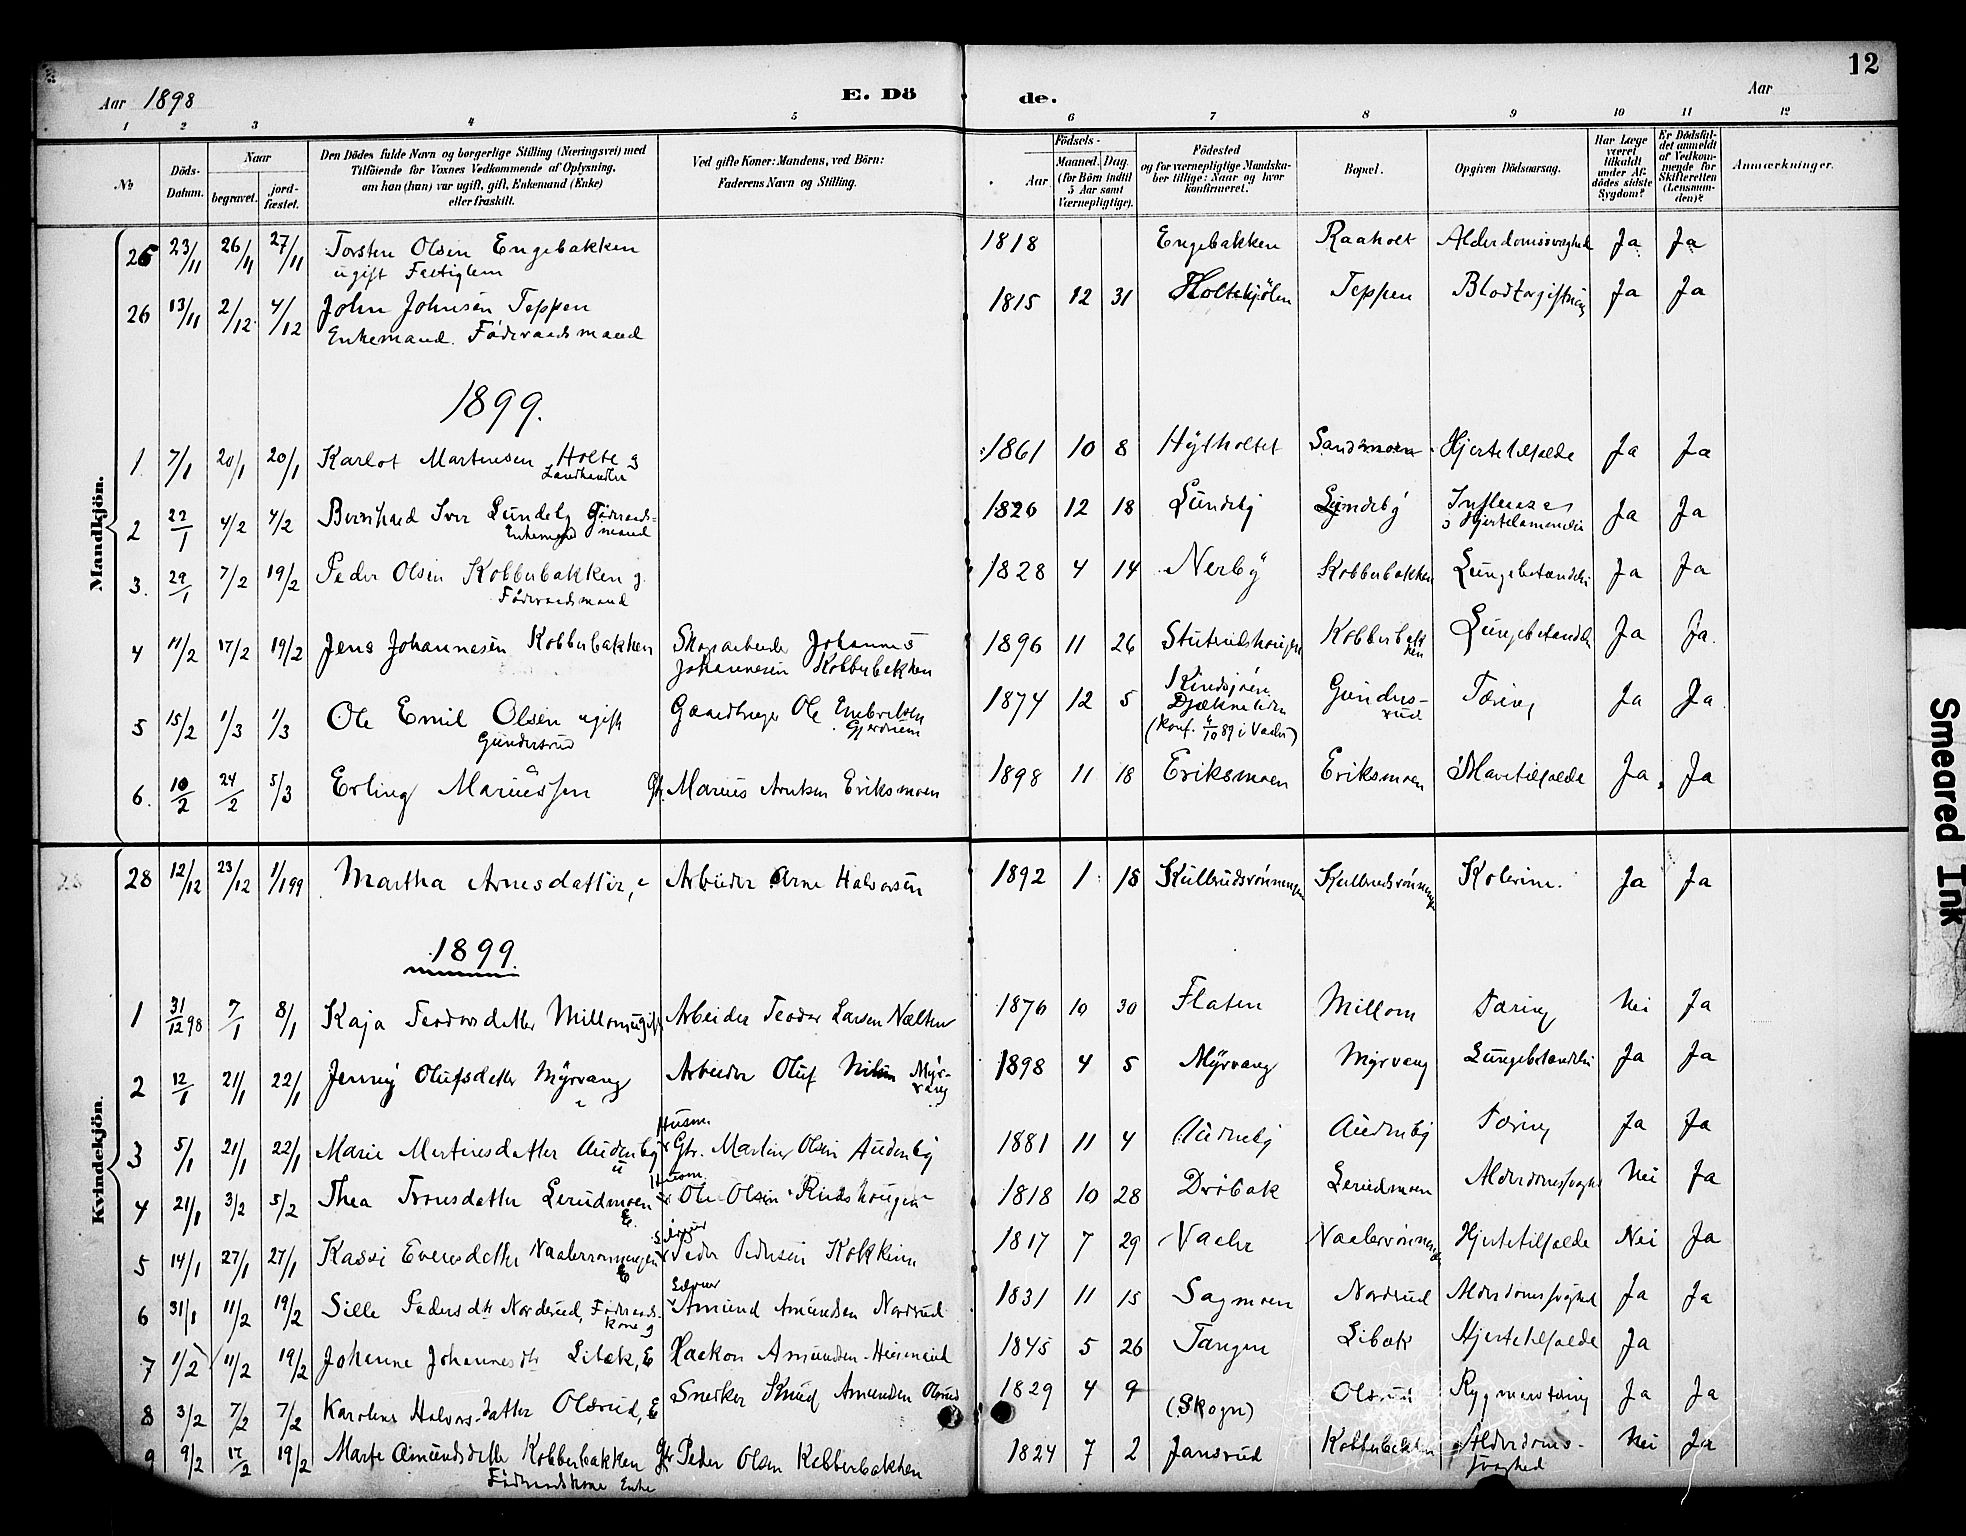 12
Aar 1898 E. Dö de. Aar
1 2 3 4 5 6 7 8 9 10 11 12
No
Döds-Datum.
Naar
begravet.
jord-fæstet.
Den Dödes fulde Navn og borgerlige Stilling (Næringsvei) med
Tilföiende for Voxnes Vedkommende af Oplysning,
om han (hun) var ugift, gift, Enkemand (Enke)
eller fraskilt.
Ved gifte Koner: Mandens, ved Börn:
Faderens Navn og Stilling.
Födsels-
Aar
Maaned. Dag.
(for Börn indtil
5 Aar samt
Værnepligtige).
Födested
og for værnepligtige Mandska-
ber tillige: Naar og hvor
konfirmeret.
Bopæl.
Opgiven Dödsaarsag.
Har Læge
været
tilkaldt
under Af-
dödes sidste
Sygdom?
Er Dödsfal-
det anmeldt
af Vedkom-
mende for
Skifteretten
(Lensman-
den)?
Anmærkninger.
Mandkjön.
25 23/11 26/11 27/11 Torsten Olsen Engebakken 1818 Engebakken Raaholt Alderdomssvaghed Ja Ja
ugift Fattiglem
26 13/11 2/12 4/12 John Johnsen Teppen 1815 12 31 Holtekjölen Teppen Blodforgiftning Ja Ja
Enkemand. Föderaadsmand
1899.
1 7/1 20/1 20/1 Karlot Martinsen Holte g 1861 10 8 Hytholtet Sandsmoen Hjertetilfælde Ja Ja
Landhandler
2 22/1 4/2 4/2 Bernhard Iver Lundeby Föderaads- 1826 12 18 Lundeby Lundeby Influenza Ja Ja
Enkemand mand
3. 29/1 7/2 19/2 Peder Olsen Kobberbakken g. 1828 4 14 Nerby Kobberbakken Lungebetændelse Ja Ja
Föderaadsmand
4 11/2 17/2 19/2 Jens Johannesen Kobberbakken Skogarbeider Johannes 1896 11 26 Kobberbakken Lungebetændelse Ja Ja.
Johannesen Kobberbakken
5 15/2 1/3 1/3 Ole Emil Olsen ugift Gaardbruger Ole Engebretsen 1874 12 5 Gunders-rud Tæring Ja Ja
Gundersrud
(Konf. 4/10 89 i Vaaler)
6. 10/2 24/2 5/3 Erling Mariussen Gb. Marius Arntsen Eriksmoen 1898 11 18 Eriksmoen Eriksmoen Mavetilfælde Ja Ja
Kvindekjön.
28 28 12/12 23/12 1/1 99 Martha Arnesdatter, Arbeider Arne Halvorsen 1892 1 18 Kulbrudsrönningen Kulbrudsrönningen Kolerine. Ja Ja
1899.
1 31/12 98 7/1 8/1 Kaja Teodorsdatter Millom ugift Arbeider Teodor Larsen 1876 10 30 Flaten Millom Tæring Nei Ja
2 12/1 21/1 22/1 Jenny Olufsdatter Myrvang Arbeider Oluf Nilsen Myr-vang 1898 4 5 Myrvang Myrvang Lungebetændelse Ja Ja
Husm.
3 5/1 21/1 22/1 Marie Martinsdatter Audenby Gbr. Martin Olsen Audenby 1881 11 4 Audenby Audenby Tæring Ja Ja
u
Husm.
4 21/1 3/2 5/2 Thea Tronsdatter Lerudmoen Ole Olsen 1818 10 28 Dröbak Lerudmoen Alderdomssvaghed Nei Ja
E.
5 14/1 27/1 27/1 Kassi Evensdatter Naalerrönningen Peder Pedersen 1817 7 29 Vaaler Naalerrönningen Hjertetilfælde Nei Ja
E
6 31/1 11/2 19/2 Sille Pedersdtr Nordrud, Föderaads- Amund Amundsen Nordrud 1831 11 15 Sagmoen Nordrud Alderdomssvaghed Ja Ja
kone g
7 1/2 11/2 19/2 Johanne Johannesdtr Libæk, E Haakon Amundsen 1845 5 26 Tangen Libæk Hjertetilfælde Ja
8 3/2 7/2 7/2 Karoline Halvorsdatter Olsrud, E Snedker Knud Amundsen Olsrud 1829 4 9 (Skogn) Olsrud Rygmarvtæring Ja Ja
9 9/2 17/2 19/2 Marte Amundsdatter Kobberbakken Gbr Peder Olsen Kobberbakken 1824 7 2 Jansrud Kobberbakken Alderdoms- Nei Ja
Föderaadskone Enke svaghed
Smeared Ink